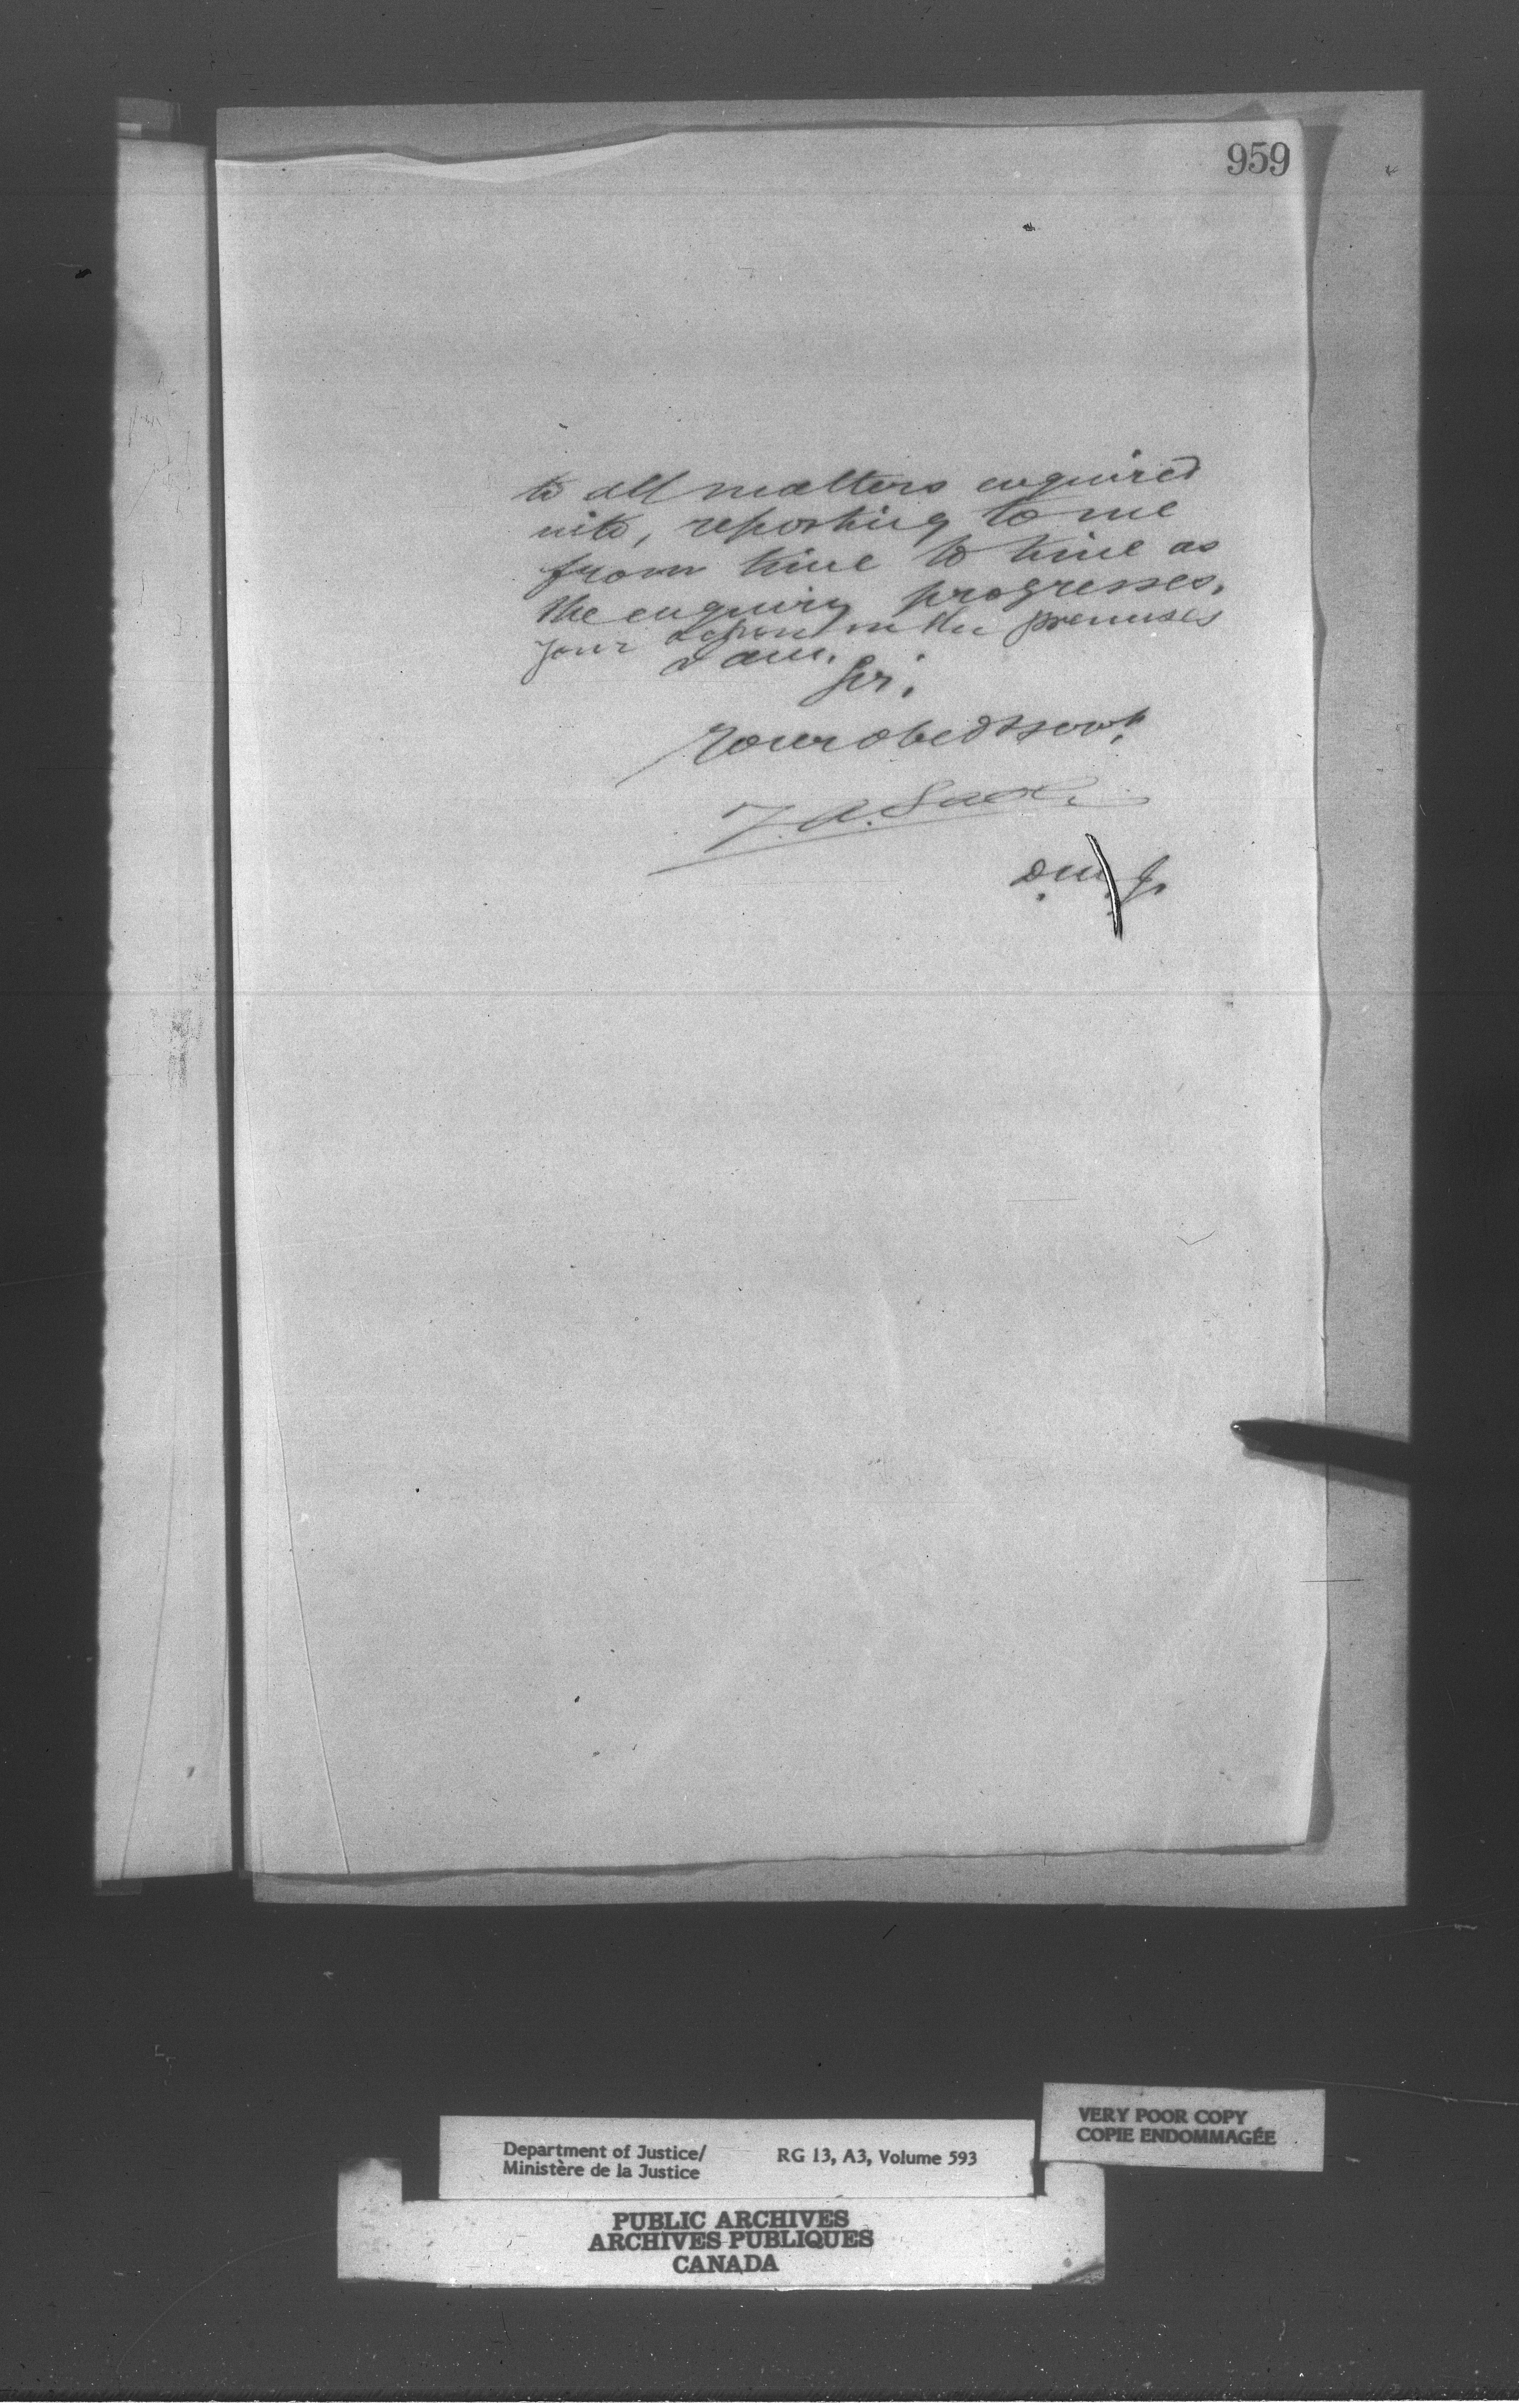 959
to all matters enquired
into, reporting to me
from time to time as
the enquiry progresses,
your action in the premises
I am,
Sir,
Your obedt servt.
D.M.J.
VERY POOR COPY
COPIE ENDOMMAGÉE
Department of Justice/
Ministère de la Justice
RG 13, A3, Volume 593
PUBLIC ARCHIVES
ARCHIVES PUBLIQUES
CANADA